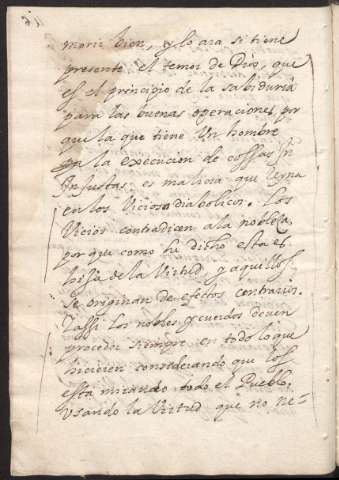 morir bien, y lo ara si tiene
presente el temor de Dios, que
es el principio de la sabiduria
para las buenas operaciones, por
que la que tiene Un hombre
en la execucion de cossas In
Injustas es malicia que Reyna
en los Vicios diabolicos. Los
Vicios contradicen a la nobleça
por que como he dicho esta es
hija de la Virtud, y aquellos
se originan de efectos contrarios.
Y assi los nobles y cuerdos deven
proceder siempre en todo lo que
hicieren considerando que los
esta mirando todo el Pueblo,
usando la Virtud que no ne=